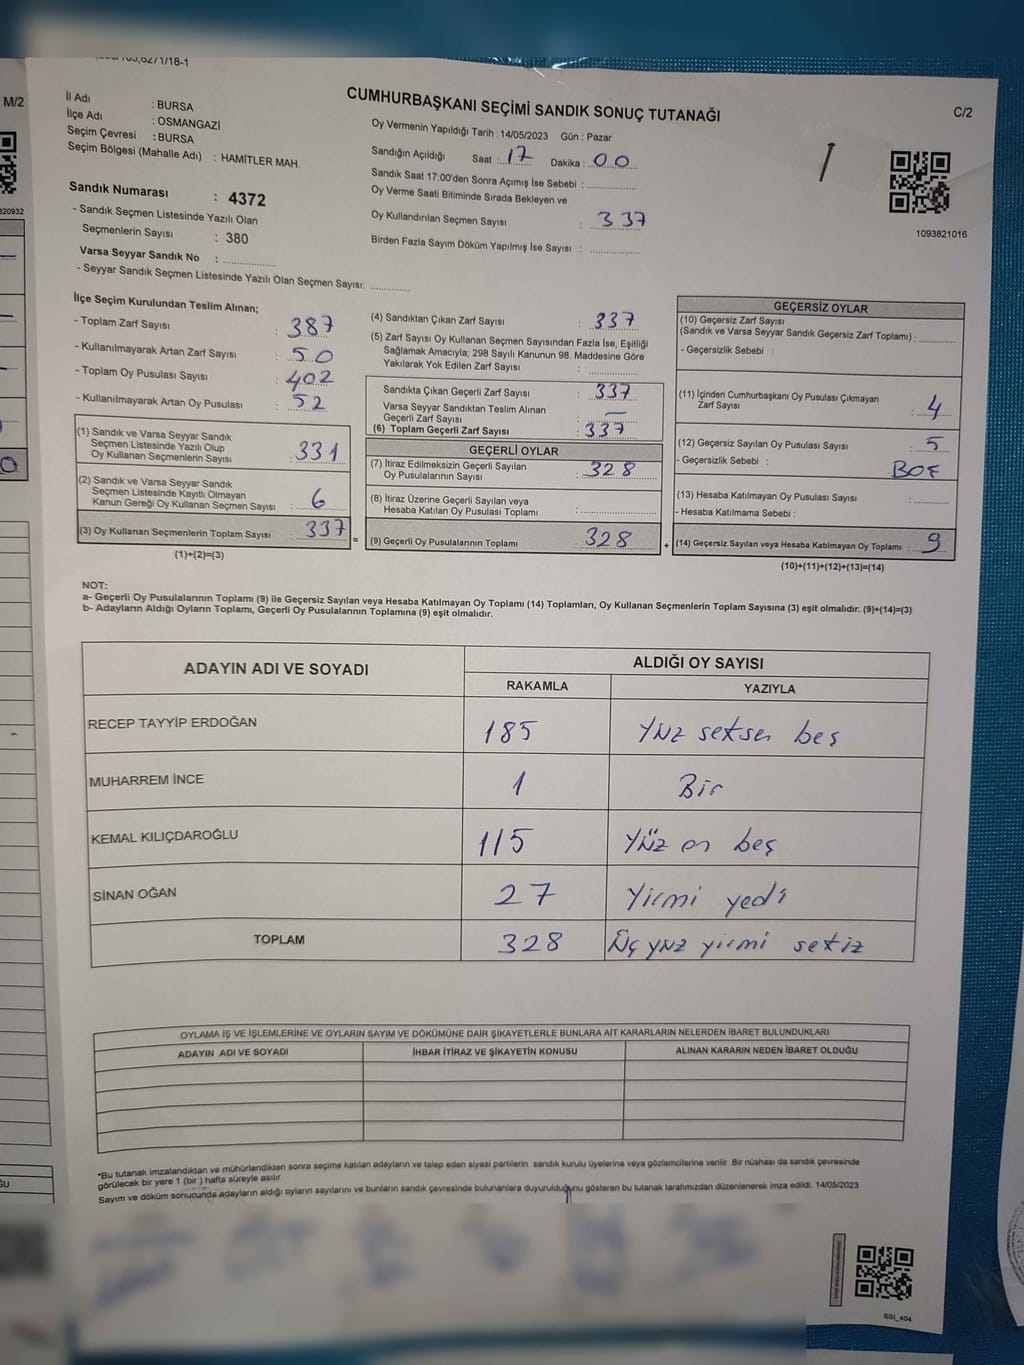 M/2
C/2
İl Adı : BURSA
İlçe Adı : OSMANGAZİ
Seçim Çevresi : BURSA
Seçim Bölgesi (Mahalle Adı) : HAMİTLER MAH.
Sandık Numarası : 4372
- Sandık Seçmen Listesinde Yazılı Olan
Seçmenlerin Sayısı : 380
Varsa Seyyar Sandık No : ..............
- Seyyar Sandık Seçmen Listesinde Yazılı Olan Seçmen Sayısı: ..........
CUMHURBAŞKANI SEÇİMİ SANDIK SONUÇ TUTANAĞI
Oy Vermenin Yapıldığı Tarih : 14/05/2023 Gün : Pazar
Sandığın Açıldığı Saat : 17 Dakika : 00
Sandık Saat 17:00'den Sonra Açımış İse Sebebi : ..............
Oy Verme Saati Bitiminde Sırada Bekleyen ve
Oy Kullandırılan Seçmen Sayısı : 337
Birden Fazla Sayım Döküm Yapılmış İse Sayısı : ..............
1093821016
İlçe Seçim Kurulundan Teslim Alınan;
- Toplam Zarf Sayısı : 387
- Kullanılmayarak Artan Zarf Sayısı : 50
- Toplam Oy Pusulası Sayısı : 402
- Kullanılmayarak Artan Oy Pusulası : 52
(1) Sandık ve Varsa Seyyar Sandık
Seçmen Listesinde Yazılı Olup
Oy Kullanan Seçmenlerin Sayısı : 331
(2) Sandık ve Varsa Seyyar Sandık
Seçmen Listesinde Kayıtlı Olmayan
Kanun Gereği Oy Kullanan Seçmen Sayısı : 6
(3) Oy Kullanan Seçmenlerin Toplam Sayısı : 337 =
(1)+(2)=(3)
(4) Sandıktan Çıkan Zarf Sayısı : 337
(5) Zarf Sayısı Oy Kullanan Seçmen Sayısından Fazla İse, Eşitliği
Sağlamak Amacıyla; 298 Sayılı Kanunun 98. Maddesine Göre
Yakılarak Yok Edilen Zarf Sayısı : ..............
Sandıkta Çıkan Geçerli Zarf Sayısı : 337
Varsa Seyyar Sandıktan Teslim Alınan
Geçerli Zarf Sayısı : —
(6) Toplam Geçerli Zarf Sayısı : 337
GEÇERLİ OYLAR
(7) İtiraz Edilmeksizin Geçerli Sayılan
Oy Pusulalarının Sayısı : 328
(8) İtiraz Üzerine Geçerli Sayılan veya
Hesaba Katılan Oy Pusulası Toplamı : ..............
(9) Geçerli Oy Pusulalarının Toplamı : 328 +
GEÇERSİZ OYLAR
(10) Geçersiz Zarf Sayısı
(Sandık ve Varsa Seyyar Sandık Geçersiz Zarf Toplamı) : ..........
- Geçersizlik Sebebi :
(11) İçinden Cumhurbaşkanı Oy Pusulası Çıkmayan
Zarf Sayısı : 4
(12) Geçersiz Sayılan Oy Pusulası Sayısı : 5
- Geçersizlik Sebebi :
(13) Hesaba Katılmayan Oy Pusulası Sayısı : ..........
- Hesaba Katılmama Sebebi :
(14) Geçersiz Sayılan veya Hesaba Katılmayan Oy Toplamı : 9
(10)+(11)+(12)+(13)=(14)
NOT:
a- Geçerli Oy Pusulalarının Toplamı (9) ile Geçersiz Sayılan veya Hesaba Katılmayan Oy Toplamı (14) Toplamları, Oy Kullanan Seçmenlerin Toplam Sayısına (3) eşit olmalıdır. (9)+(14)=(3)
b- Adayların Aldığı Oyların Toplamı, Geçerli Oy Pusulalarının Toplamına (9) eşit olmalıdır.
ADAYIN ADI VE SOYADI ALDIĞI OY SAYISI
RAKAMLA YAZIYLA
RECEP TAYYİP ERDOĞAN 185 Yüz seksen beş
MUHARREM İNCE 1 Bir
KEMAL KILIÇDAROĞLU 115 Yüz on beş
SİNAN OĞAN 27 Yirmi yedi
TOPLAM 328 Üç yüz yirmi sekiz
OYLAMA İŞ VE İŞLEMLERİNE VE OYLARIN SAYIM VE DÖKÜMÜNE DAİR ŞİKAYETLERLE BUNLARA AİT KARARLARIN NELERDEN İBARET BULUNDUKLARI
ADAYIN ADI VE SOYADI İHBAR İTİRAZ VE ŞİKAYETİN KONUSU ALINAN KARARIN NEDEN İBARET OLDUĞU
*Bu tutanak imzalandıktan ve mühürlendikten sonra seçime katılan adayların ve talep eden siyasi partilerin sandık kurulu üyelerine veya gözlemcilerine verilir. Bir nüshası da sandık çevresinde
görülecek bir yere 1 (bir ) hafta süreyle asılır.
Sayım ve döküm sonucunda adayların aldığı oyların sayılarını ve bunların sandık çevresinde bulunanlara duyurulduğunu gösteren bu tutanak tarafımızdan düzenlenerek imza edildi. 14/05/2023
SSI_404